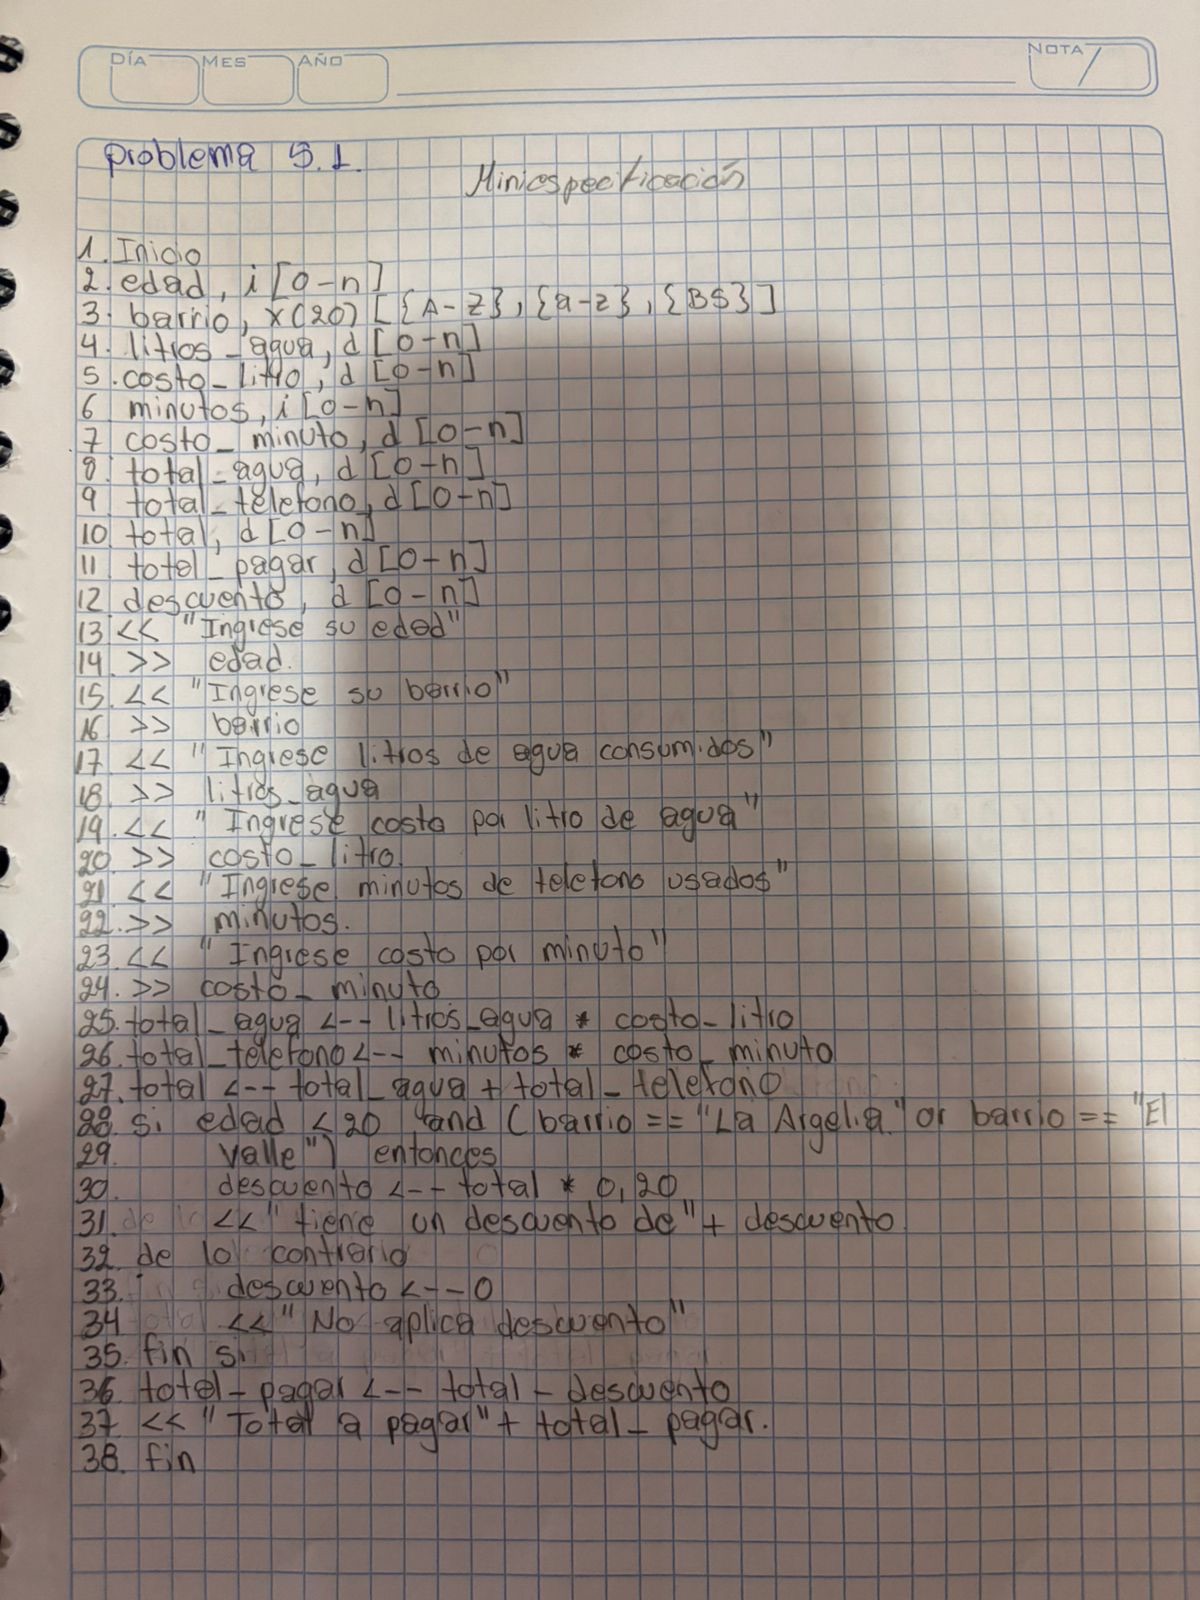 DÍA MES AÑO NOTA
problema 5.1.
Miniespecificación
1. Inicio
2. edad, i [0-n]
3. barrio, x(20) [{A-Z}, {a-z}, {BS}]
4. litros_agua, d [0-n]
5. costo_litro, d [0-n]
6 minutos, i [0-n]
7 costo_minuto, d [0-n]
8. total_agua, d [0-n]
9 total_telefono, d [0-n]
10 total, d [0-n]
11 total_pagar, d [0-n]
12 descuento, d [0-n]
13 << "Ingrese su edad"
14. >> edad.
15. << "Ingrese su barrio"
16 >> barrio
17. << "Ingrese litros de agua consumidos"
18. >> litros_agua
19. << "Ingrese costo por litro de agua"
20. >> costo_litro
21. << "Ingrese minutos de telefono usados"
22. >> minutos.
23. << "Ingrese costo por minuto"
24. >> costo_minuto
25. total_agua <-- litros_agua * costo_litro
26. total_telefono <-- minutos * costo_minuto
27. total <-- total_agua + total_telefono
28. si edad < 20 and (barrio == "La Argelia" or barrio == "El
29. valle") entonces
30. descuento <-- total * 0,20
31. << "tiene un descuento de" + descuento
32. de lo contrario
33. descuento <-- 0
34 << "No aplica descuento"
35. fin si
36 total_pagar <-- total - descuento
37 << "Total a pagar" + total_pagar.
38. fin